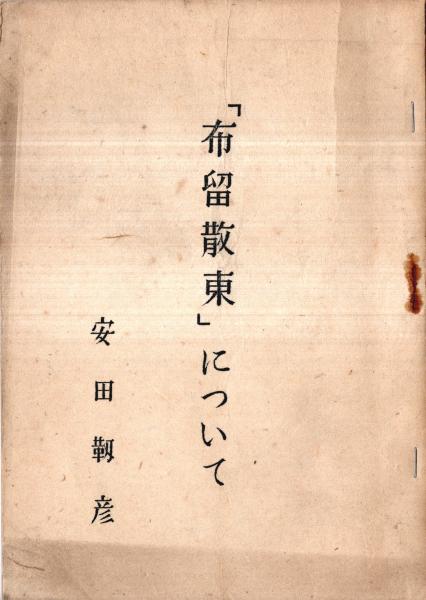 「布留散東」について
安田靭彦